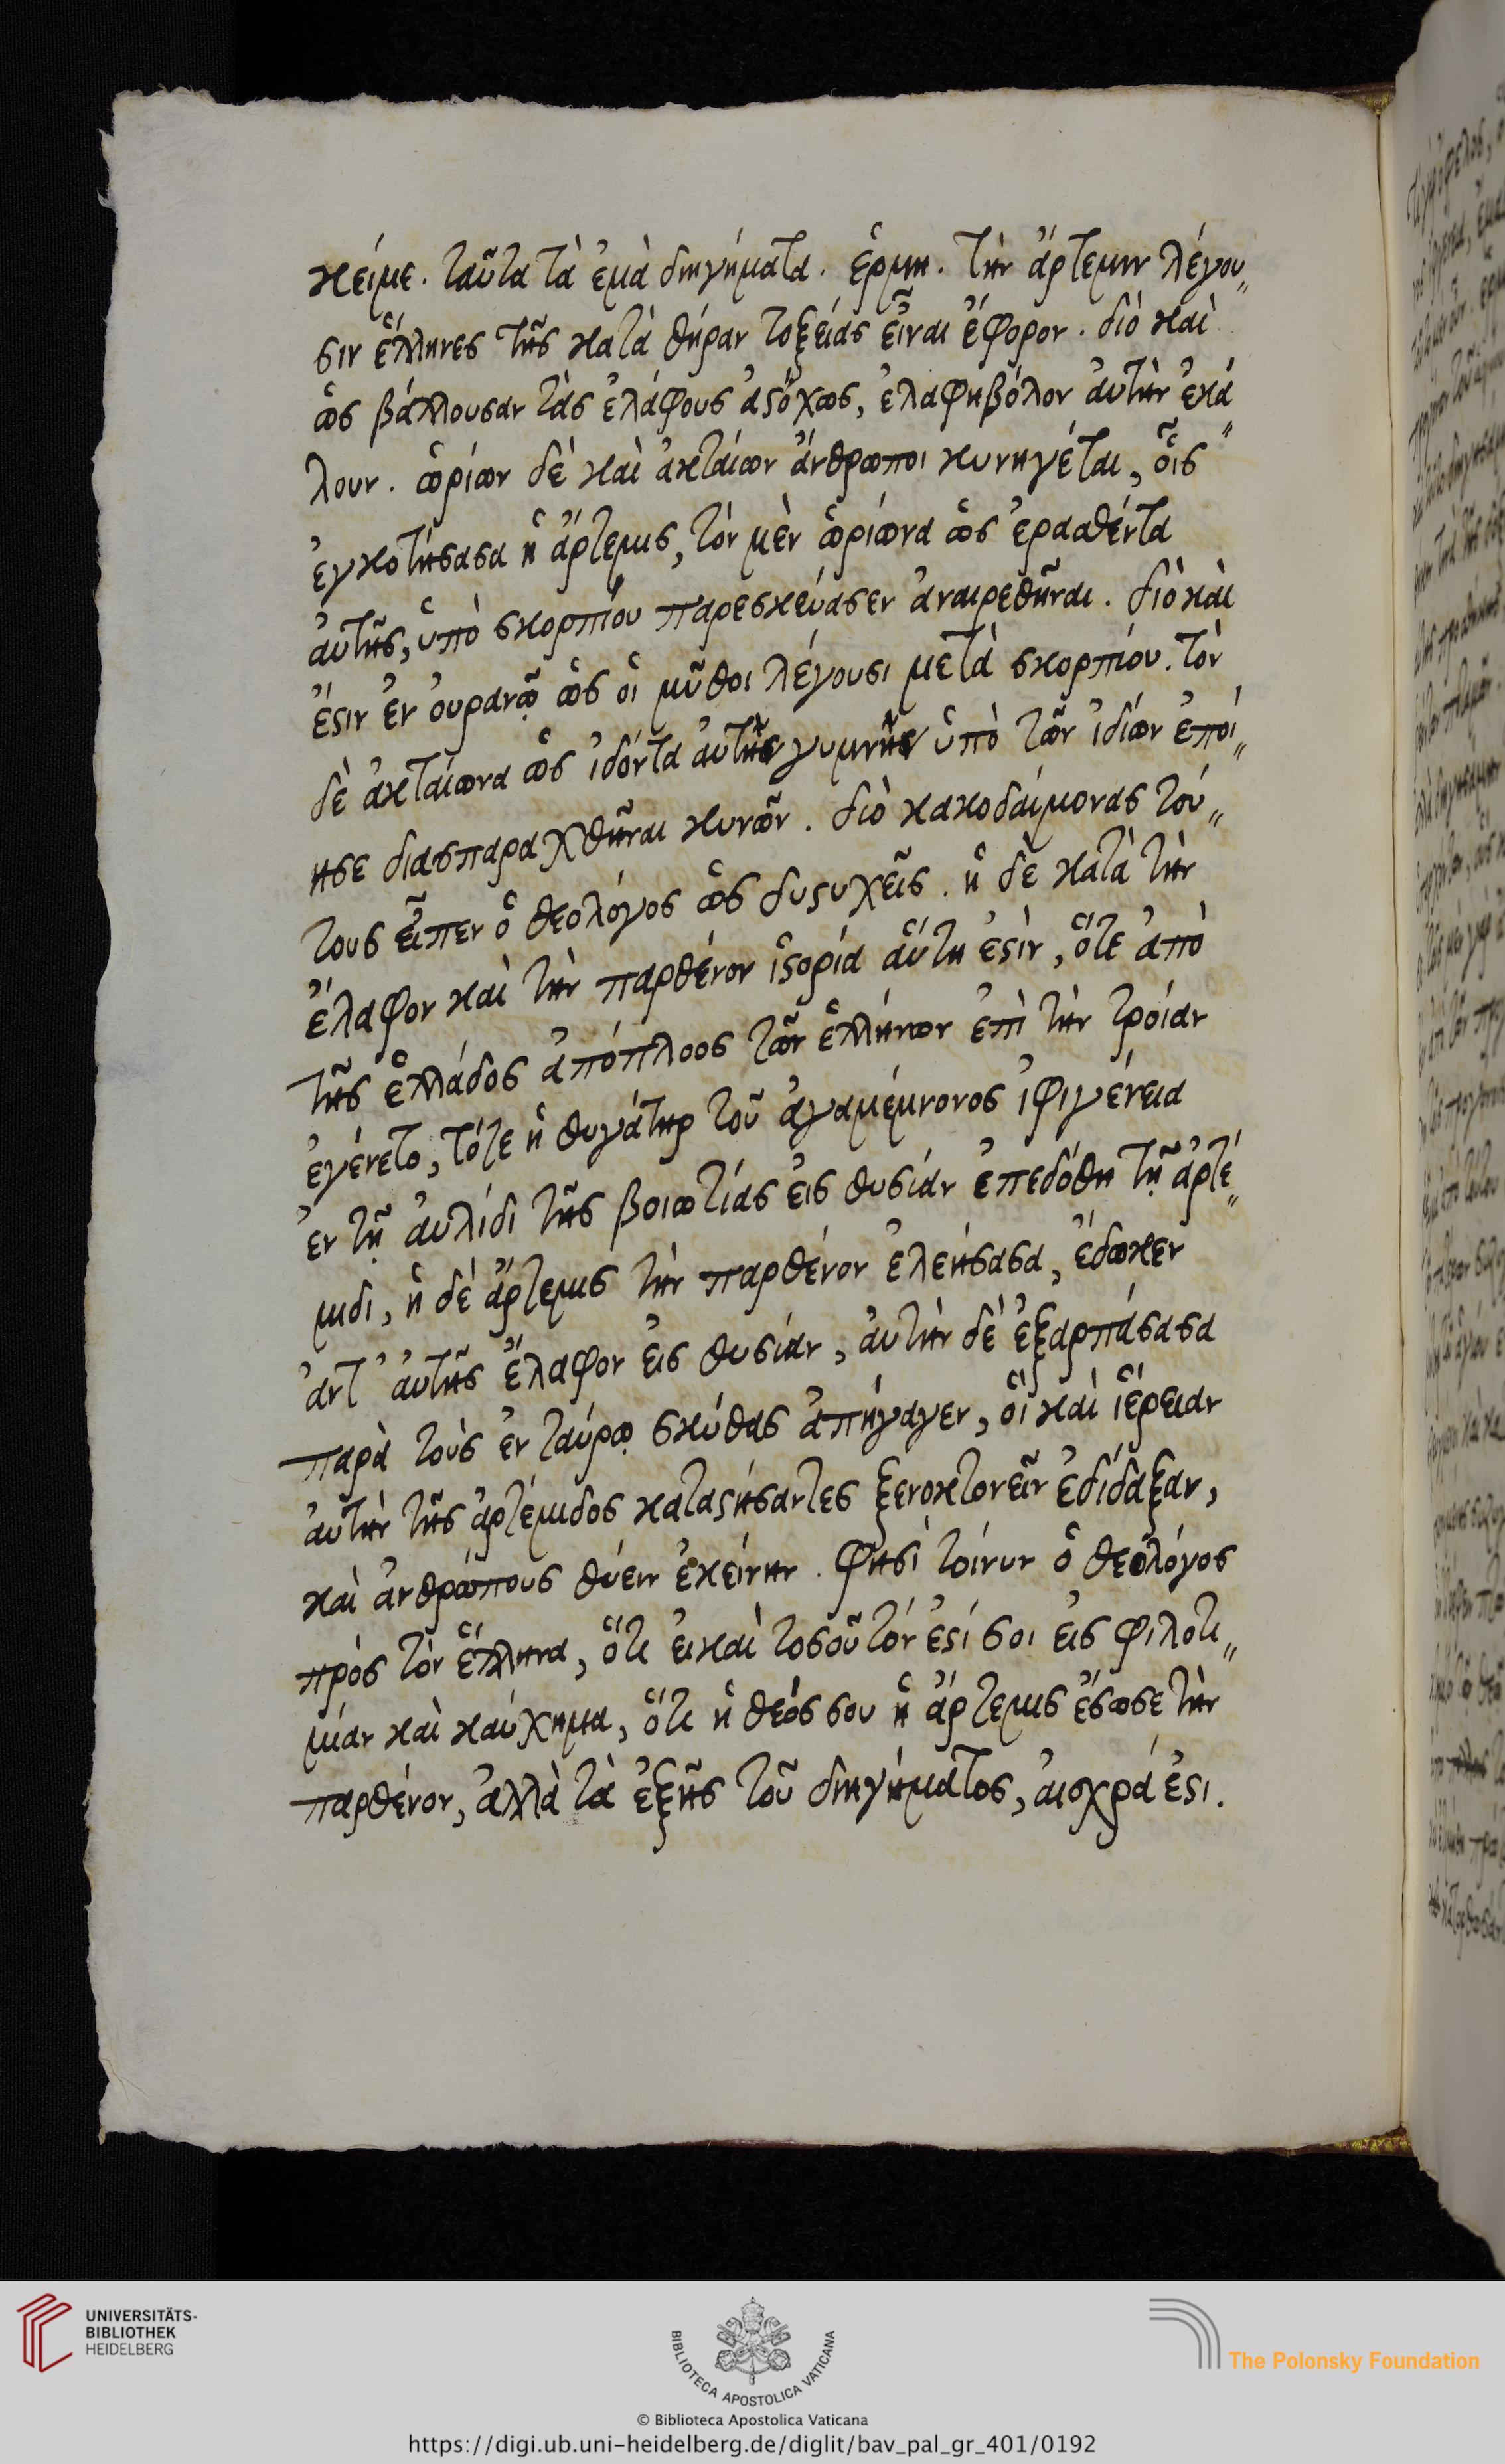 κείμε. ταῦτα τὰ ἐμὰ διηγήματα. ἑρμη. τὴν ἄρτεμιν λέγου,,
σιν ἕλληνες τῆς κατὰ θήραν τοξείας εἶναι ἔφορον. διὸ καὶ
ὡς βάλλουσαν τὰς ἐλάφους ἀϛόχως, ἐλαφηβόλον ἀυτὴν ἐκά,,
λουν. ὠρίων δὲ καὶ ἀκταίων ἄνθρωποι κυνηγέται, οἷς
ἐγκοτήσασα ἡ ἄρτεμις, τὸν μὲν ὡρίωνα ὡς ἐρασθέντα
ἀυτῆς, ὑπὸ σκορπίου παρεσκεύασεν ἀναιρεθῆναι. διὸ καὶ
ἔϛιν ἐν ὀυρανῷ ὡς ὁι μῦθοι λέγουσι μετὰ σκορπίου. τὸν
δὲ ἀκταίωνα ὡς ἰδόντα ἀυτῆς γυμνῆς ὑπὸ τῶν ἰδίων ἐποί,,
ησε διασπαραχθῆναι κυνῶν. διὸ κακοδαίμονας τού,,
τους εἶπεν ὁ θεολόγος ὡς δυϛυχεῖς. ἡ δὲ κατὰ τὴν
ἔλαφον καὶ τὴν παρθένον ἱϛορία ἅυτη ἐϛὶν, ὅτε ἀπὸ
τῆς ἑλλάδος ἀπόπλοος τῶν ἑλλήνων ἐπὶ τὴν τροίαν
ἐγένετο, τότε ἡ θυγάτηρ τοῦ ἀγαμέμνονος ἰφιγένεια
ἐν τῇ ἀυλίδι τῆς βοιωτίας ἐις θυσίαν ἐπεδόθη τῇ ἀρτέ,,
μιδι, ἡ δὲ ἄρτεμις τὴν παρθένον ἐλεήσασα, ἔδωκεν
ἀντ' ἀυτῆς ἔλαφον ἐις θυσίαν, ἀυτὴν δὲ ἐξαρπάσασα
παρὰ τοὺς ἐν ταύρῳ σκύθας ἀπήγαγεν, ὁῒ καὶ ἱέρειαν
ἀυτὴν τῆς ἀρτέμιδος καταϛήσαντες ξενοκτονεῖν ἐδίδαξαν,
καὶ ἀνθρώπους θύειν ἐκείνην. φησὶ τοίνυν ὁ θεολόγος
πρὸς τὸν ἕλληνα, ὅτι ἐι καὶ τοσοῦτόν ἐϛί σοι ἐις φιλοτι,,
μίαν καὶ καύχημα, ὅτι ἡ θεός σου ἡ ἄρτεμις ἔσωσε τὴν
παρθένον, ἀλλὰ τὰ ἑξῆς τοῦ διηγήματος, ἀισχρά ἐϛι.
UNIVERSITÄTS-
BIBLIOTHEK
HEIDELBERG
BIBLIOTECA APOSTOLICA VATICANA
The Polonsky Foundation
© Biblioteca Apostolica Vaticana
https://digi.ub.uni-heidelberg.de/diglit/bav_pal_gr_401/0192